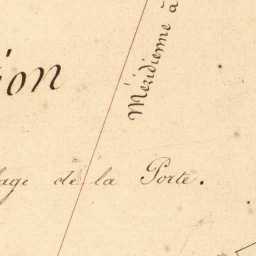 ion
Méridienne à
lage de la Porte.